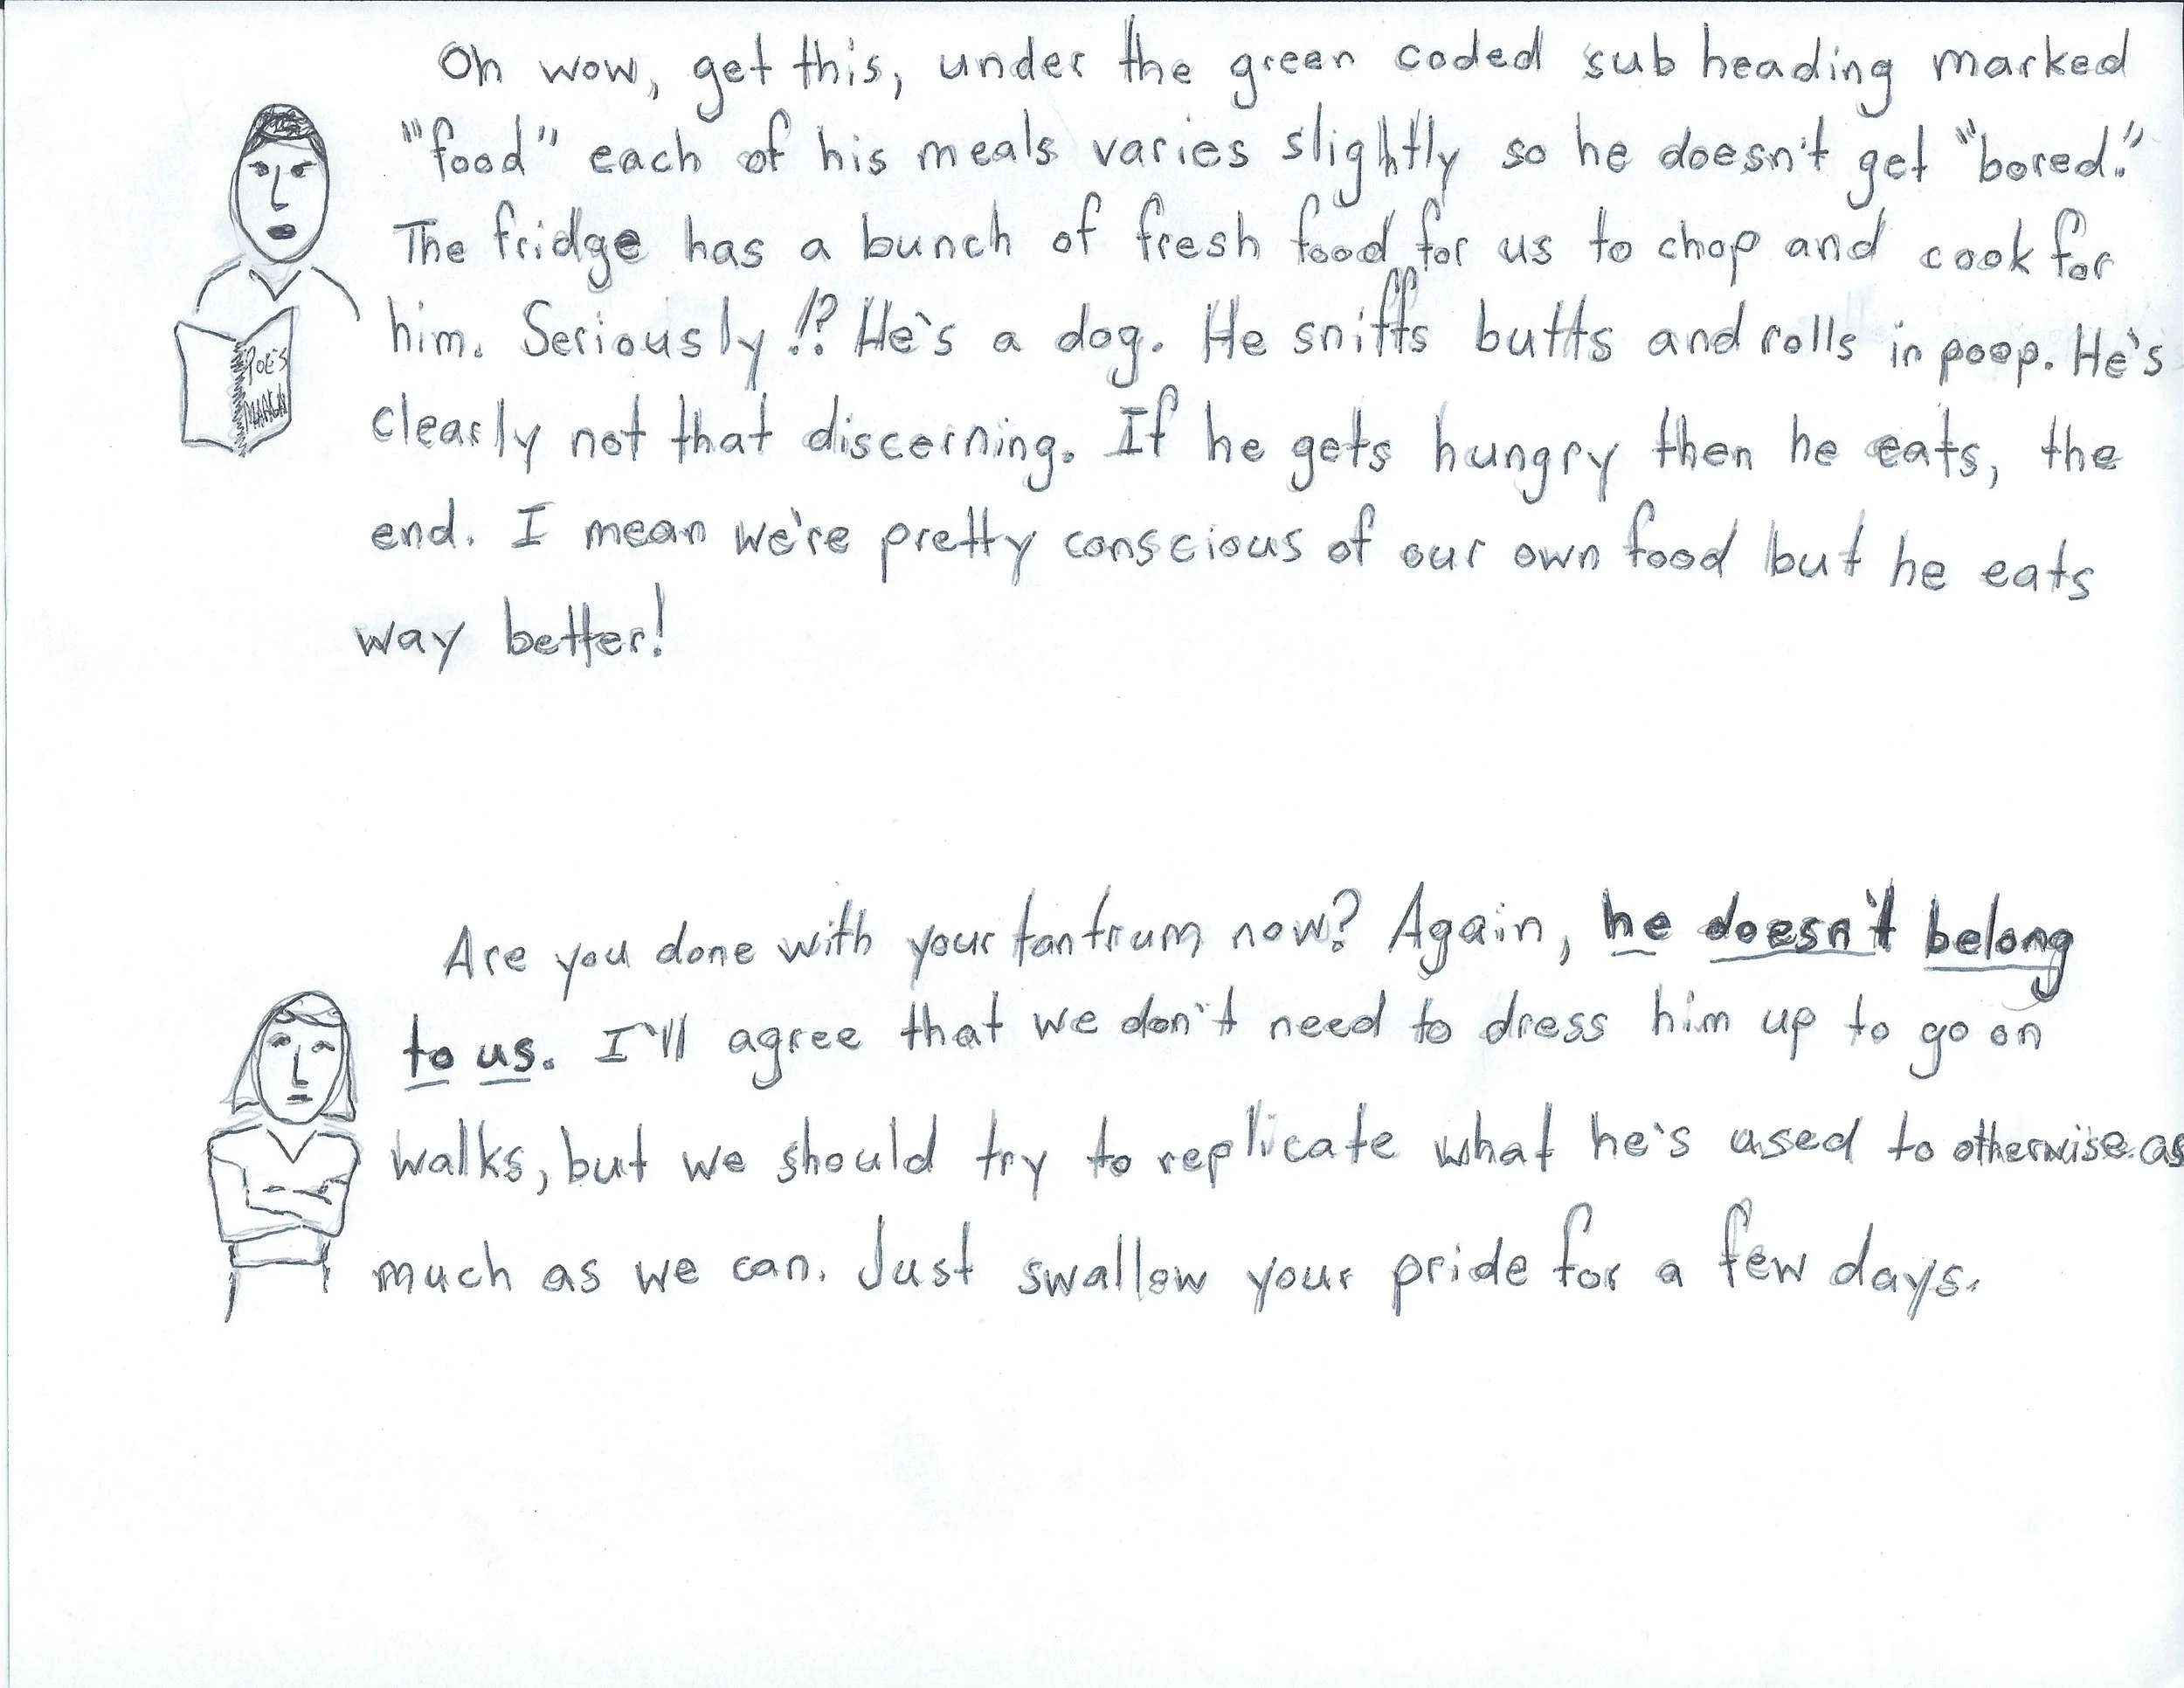 Oh wow, get this, under the green coded sub heading marked
"food" each of his meals varies slightly so he doesn't get "bored."
The fridge has a bunch of fresh food for us to chop and cook for
him. Seriously!? He's a dog. He sniffs butts and rolls in poop. He's
clearly not that discerning. If he gets hungry then he eats, the
end. I mean we're pretty conscious of our own food but he eats
way better!
POE'S
Are you done with your tantrum now? Again, he doesn't belong
to us. I'll agree that we don't need to dress him up to go on
walks, but we should try to replicate what he's used to otherwise as
much as we can. Just swallow your pride for a few days.